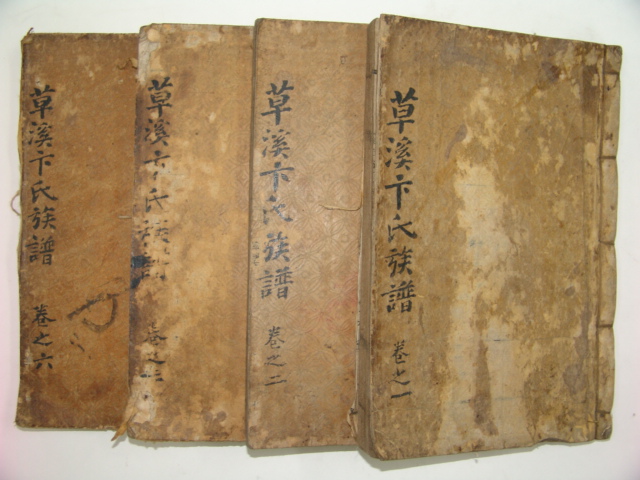 草溪卞氏族譜
卷之一
草溪卞氏族譜
卷之二
草溪卞氏族譜
卷之三
草溪卞氏族譜
卷之六